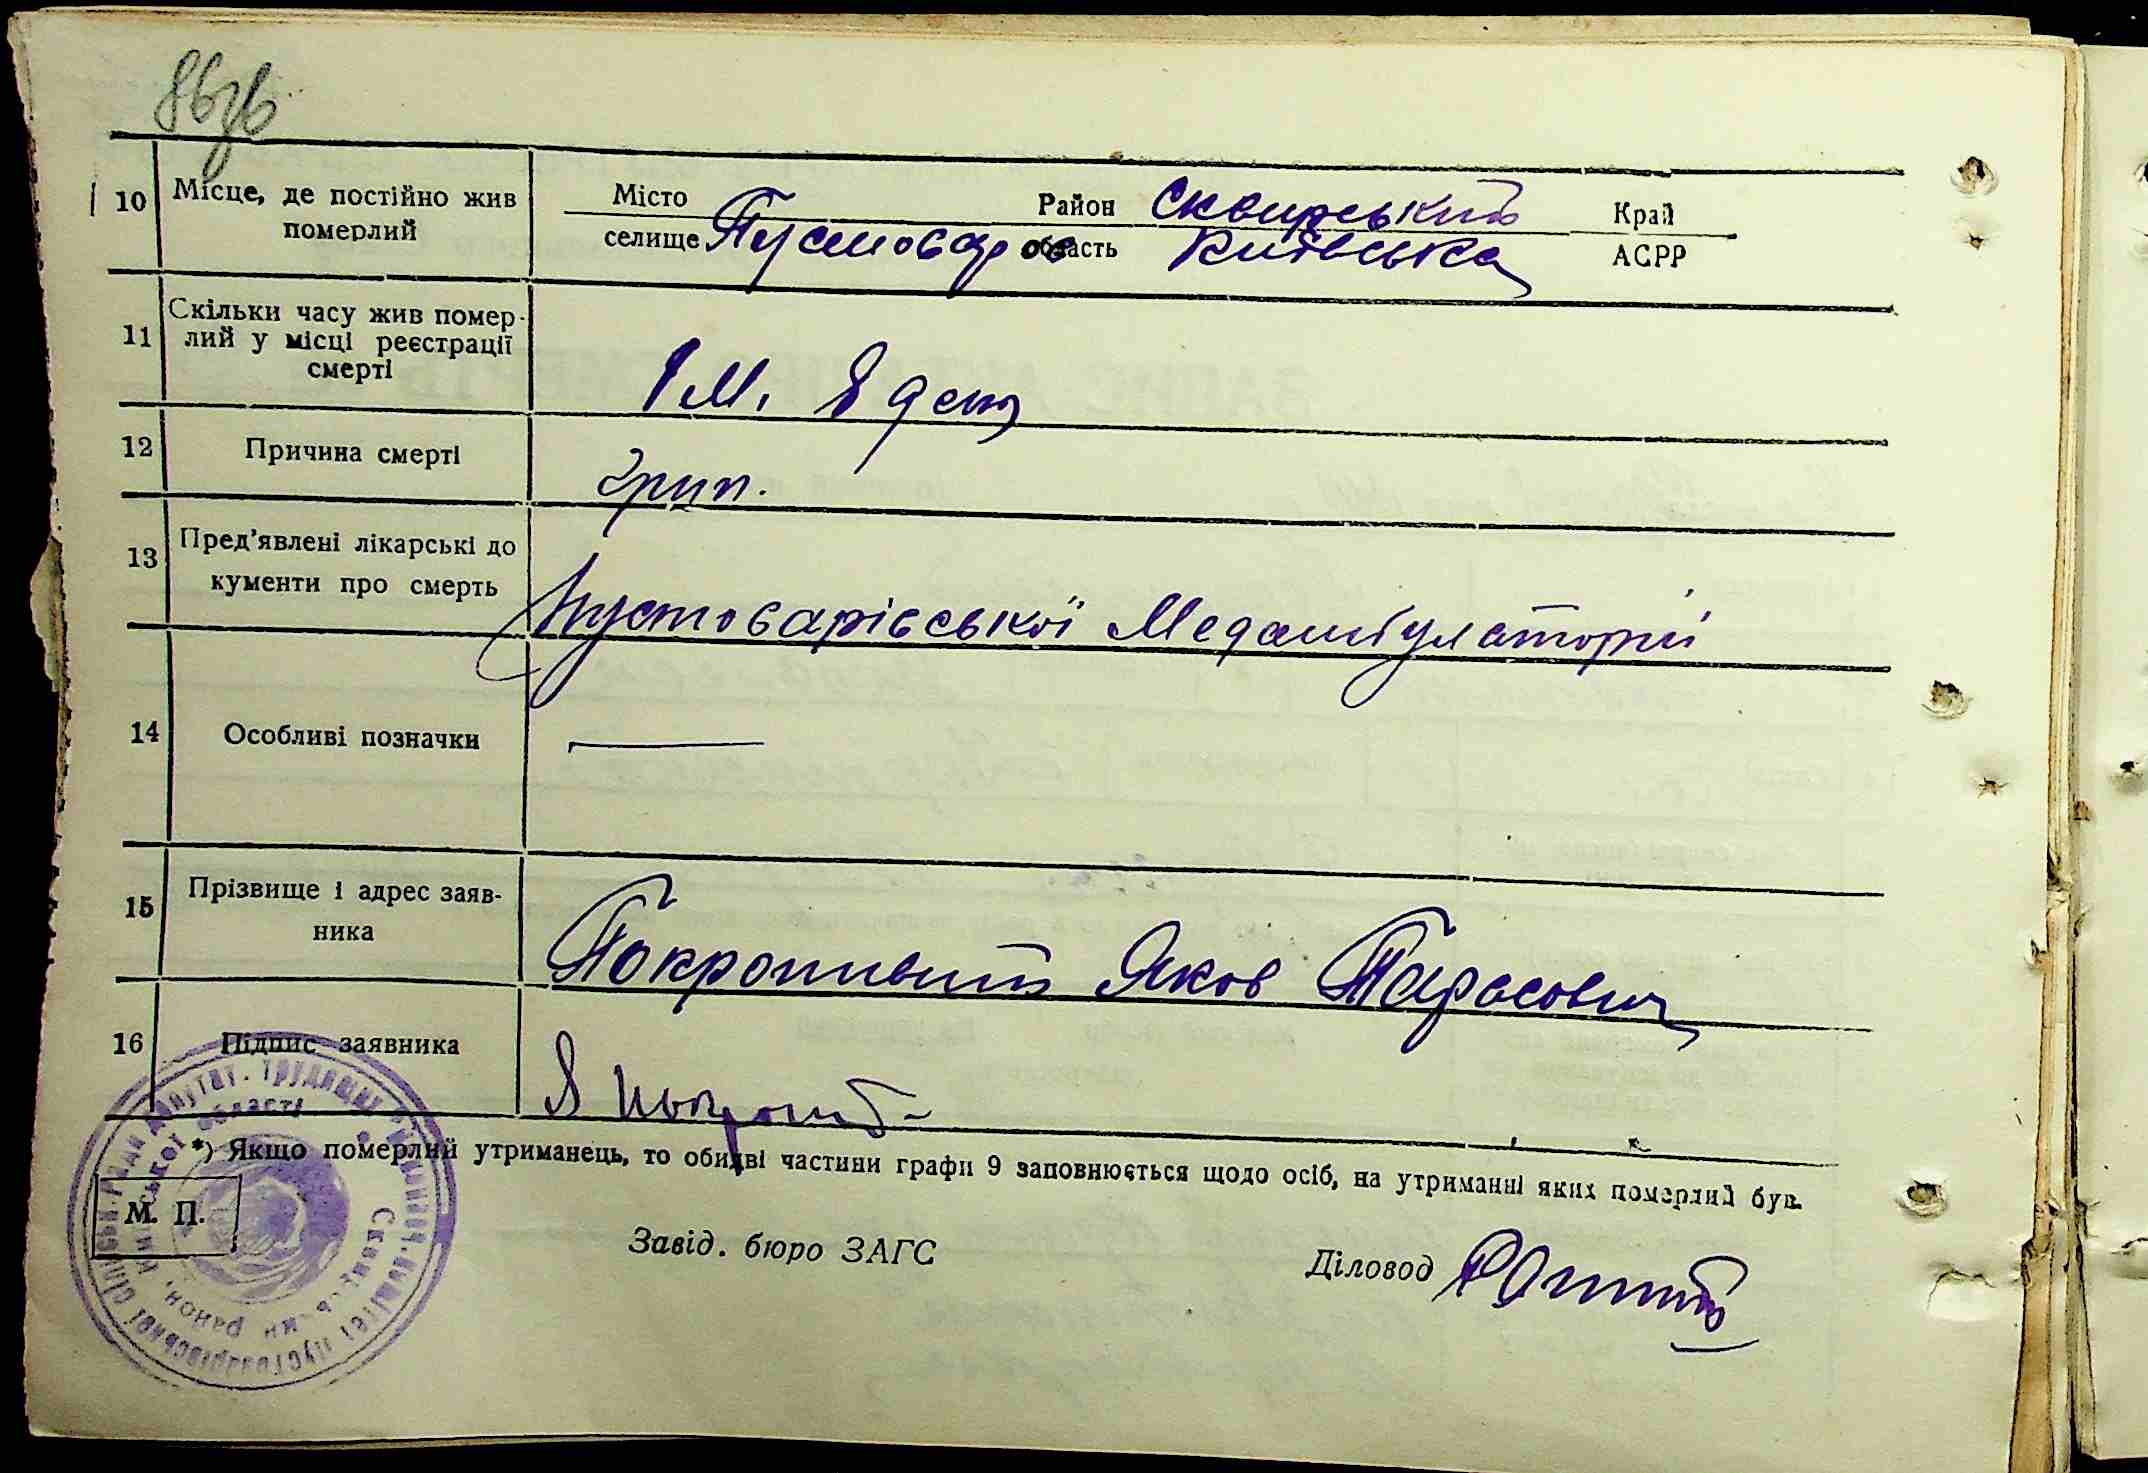 86зв
10 Місце, де постійно жив померлий
Місто Район Сквирський Край
селище Пустовар область Київська АСРР
11 Скільки часу жив помер-
лий у місці реєстрації
смерті
1 М. 8 ден
12 Причина смерті
Грип.
13 Пред'явлені лікарські до
кументи про смерть
Пустоварівської Медамбулаторії
14 Особливі позначки
15 Прізвище і адрес заяв-
ника
Покропивний Яков Тарасович
16 Підпис заявника
*) Якщо померлий утриманець, то обидві частини графи 9 заповнюється щодо осіб, на утриманні яких померлий був.
М. П.
Завід. бюро ЗАГС
Діловод